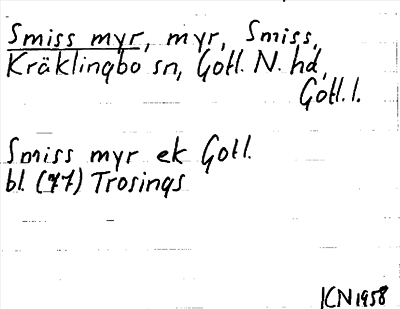 Smiss myr, myr, Smiss,
Kräklingbo sn, Gotl. N. hd,
Gotl. l.
Smiss myr ek Gotl.
bl. (77) Trosings
KN 1958